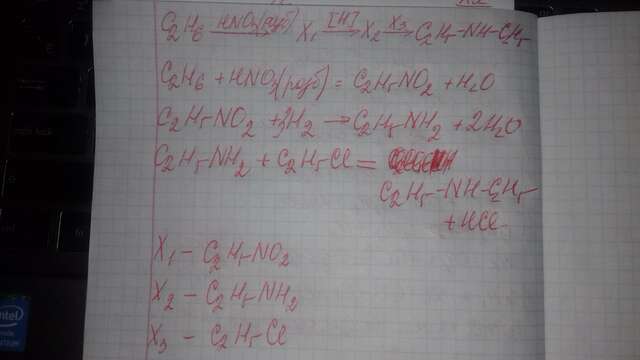 C₂H₆ —HNO₃(разб)→ X₁ —[H]→ X₂ —X₃→ C₂H₅-NH-C₂H₅
C₂H₆ + HNO₃(разб) = C₂H₅NO₂ + H₂O
C₂H₅NO₂ + 3H₂ → C₂H₅-NH₂ + 2H₂O
C₂H₅-NH₂ + C₂H₅Cl =
C₂H₅-NH-C₂H₅
+ HCl
X₁ - C₂H₅NO₂
X₂ - C₂H₅NH₂
X₃ - C₂H₅Cl
intel